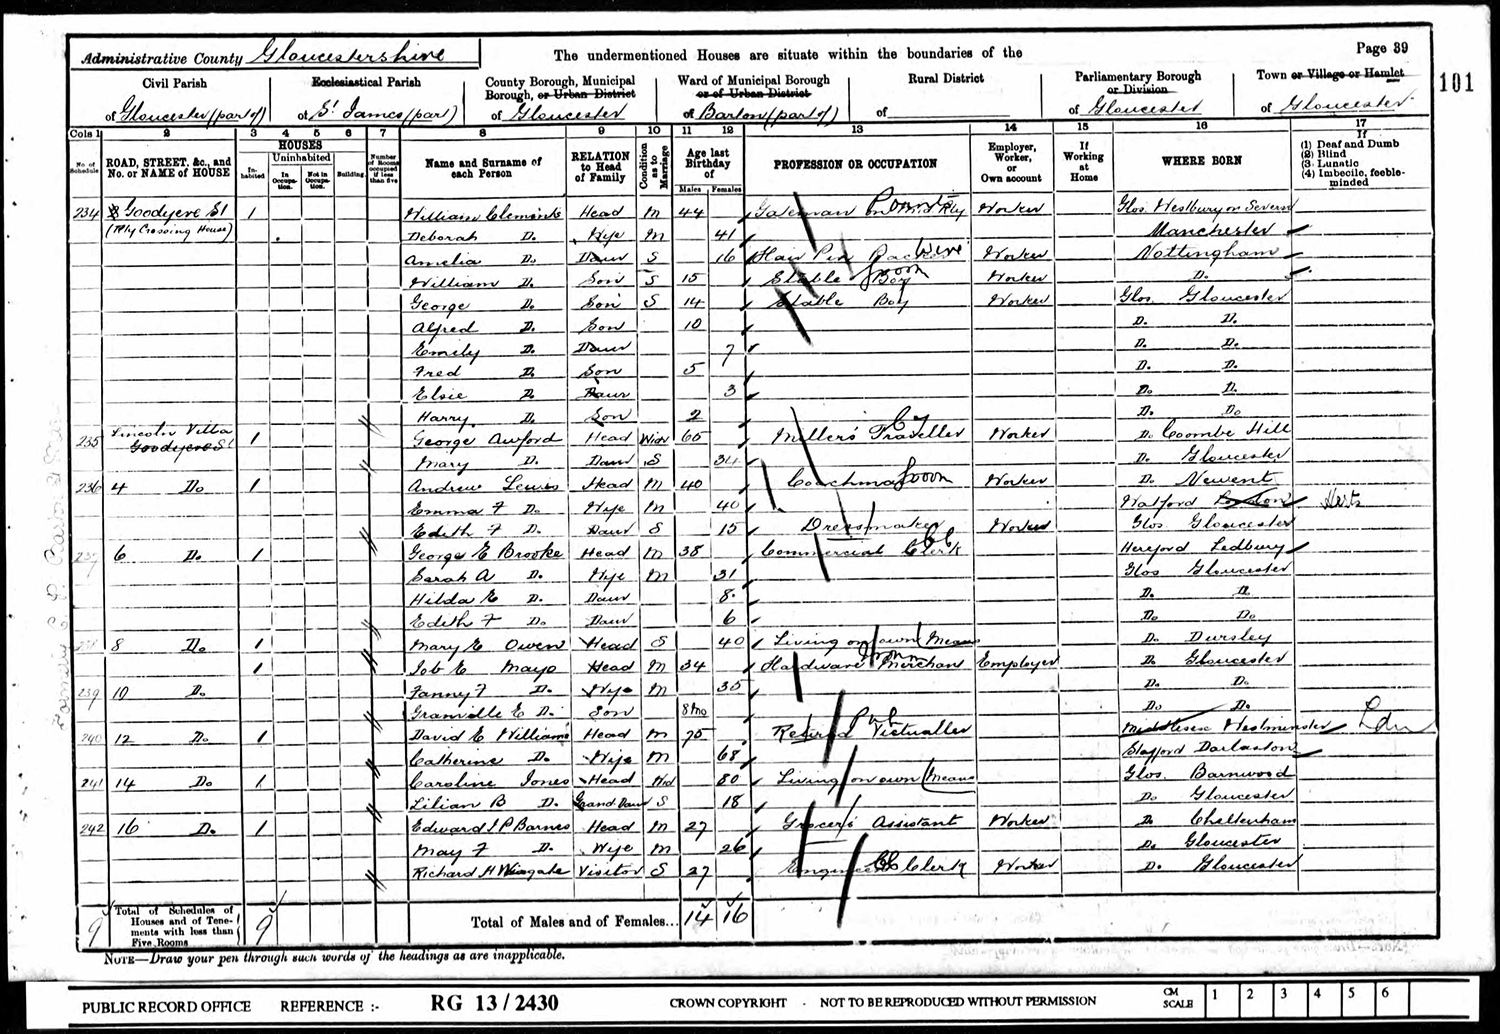 Administrative County Gloucestershire The undermentioned Houses are situate within the boundaries of the Page 39
101
Civil Parish Ecclesiastical Parish County Borough, Municipal Borough, or Urban District Ward of Municipal Borough or of Urban District Rural District Parliamentary Borough or Division Town or Village or Hamlet
of Gloucester (part of) of St James (part) of Gloucester of Barton (part of) of of Gloucester of Gloucester
Cols 1 2 3 4 5 6 7 8 9 10 11 12 13 14 15 16 17
No. of Schedule ROAD, STREET, &c., and No. or NAME of HOUSE HOUSES Inhabited Uninhabited In Occupation. Not in Occupation. Building. Number of Rooms occupied if less than five Name and Surname of each Person RELATION to Head of Family Condition as to Marriage Age last Birthday of Males Females PROFESSION OR OCCUPATION Employer, Worker, or Own account If Working at Home WHERE BORN If (1) Deaf and Dumb (2) Blind (3) Lunatic (4) Imbecile, feeble-minded
234 8 Goodyere St 1 William Clements Head M 44 Gateman on Rly Worker Glos. Westbury on Severn
(Rly Crossing House) Deborah Do Wife M 41 Manchester
Amelia Do Daur S 16 Hair Pin Packer Wire Worker Nottingham
William Do Son S 15 Stable Boy Groom Worker Do
George Do Son S 14 Stable Boy Worker Glos. Gloucester
Alfred Do Son 10 Do Do
Emily Do Daur 7 Do Do
Fred Do Son 5 Do Do
Elsie Do Daur 3 Do Do
Harry Do Son 2 Do Do
235 Lincoln Villa Goodyere St 1 George Awford Head Widr 65 Miller's Traveller Worker Do Coombe Hill
Mary Do Daur S 34 Do Gloucester
236 4 Do 1 Andrew Lewis Head M 40 Coachman Groom Worker Do Newent
Emma F Do Wife M 40 Watford London Herts
Edith F Do Daur S 15 Dressmaker Worker Glos Gloucester
237 6 Do 1 George E Brooke Head M 38 Commercial Clerk Hereford Ledbury
Sarah A Do Wife M 31 Glos Gloucester
Hilda E Do Daur 8 Do Do
Edith F Do Daur 6 Do Do
238 8 Do 1 Mary E Owen Head S 40 Living on own Means Do Dursley
1 Job E Mayo Head M 34 Hardware Merchant Employer Do Gloucester
239 10 Do Fanny F Do Wife M 35 Do Do
Granville E Do Son 8 Mo Do Do
240 12 Do 1 David E Williams Head M 75 Retired Victualler Pub Middlesex Westminster Ldn
Catherine Do Wife M 68 Stafford Darlaston
241 14 Do 1 Caroline Jones Head Wid 80 Living on own Means Glos. Barnwood
Lilian B Do Grand Daur S 18 Do Gloucester
242 16 Do 1 Edward J P Barnes Head M 27 Grocer's Assistant Worker Do Cheltenham
May F Do Wife M 26 Do Gloucester
Richard H Wingate Visitor S 27 Engineer's Clerk Worker Do Gloucester
9 Total of Schedules of Houses and of Tenements with less than Five Rooms 9 Total of Males and of Females... 14 16
NOTE—Draw your pen through such words of the headings as are inapplicable.
PUBLIC RECORD OFFICE REFERENCE :- RG 13/2430 CROWN COPYRIGHT - NOT TO BE REPRODUCED WITHOUT PERMISSION CM SCALE 1 2 3 4 5 6